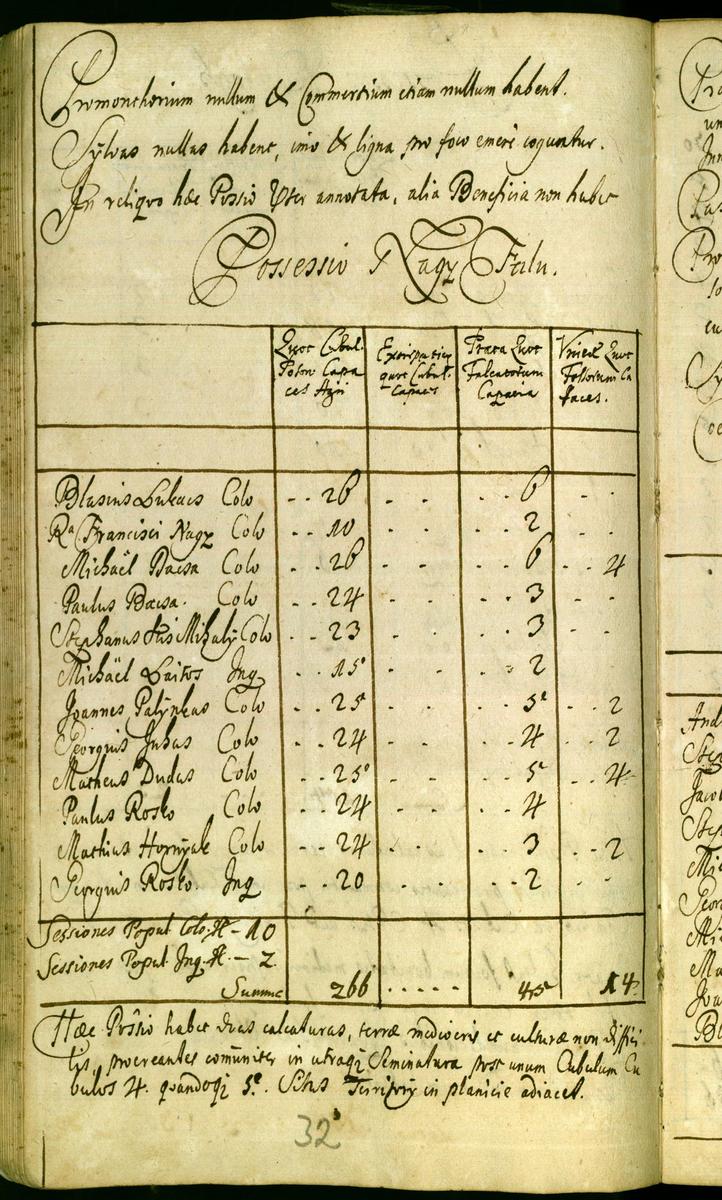 Promonthorium nullum & Commertium etiam nullum habent.
Sÿlvas nullas habent, imo & ligna pro foco emere coguntur.
In reliquo hæc Possio Uter annotata, alia Beneficia non habet
Possessio Nagy Falu.
Quot Cubul. Poson Capaces Agri
Extirpatio quot Cubul. Capaces
Prata Quot Falcatorum Capacia
Vineæ Quot Fossorum Capaces.
Blasius Lukacs Colo - - 26 - - - - 6 - -
Ra Francisci Nagy Colo - - 10 - - - - 2 - -
Michaël Bacsa Colo - - 26 - - - - 6 - - 4
Paulus Bacsa. Colo - - 24 - - - - 3 - -
Stephanus Kis Mihalÿ Colo - - 23 - - - - 3 - -
Michaël Laitos Inq - - 15 - - - - 2
Joannes Palÿnkas Colo - - 25 - - - - 5 - - 2
Georgius Juhas Colo - - 24 - - - - 4 - - 2
Matheus Dudas Colo - - 25 - - - - 5 - - 4
Paulus Rosko Colo - - 24 - - - - 4
Mathias Hornÿak Colo - - 24 - - - - 3 - - 2
Georgius Rosko. Inq - - 20 - - - - 2 - -
Sessiones Popul Colo. - 10
Sessiones Popul Inq. - 2.
Summa 266 - - - - - 45 14
Hæc Possio habet duas calcaturas, terræ mediocris et culturæ non diffici
lis, procreantes comuniter in utraq Seminatura post unum Cubulum Cu
bulos 4. quandoq 5. Situs Territorÿ in planicie adiacet.
32